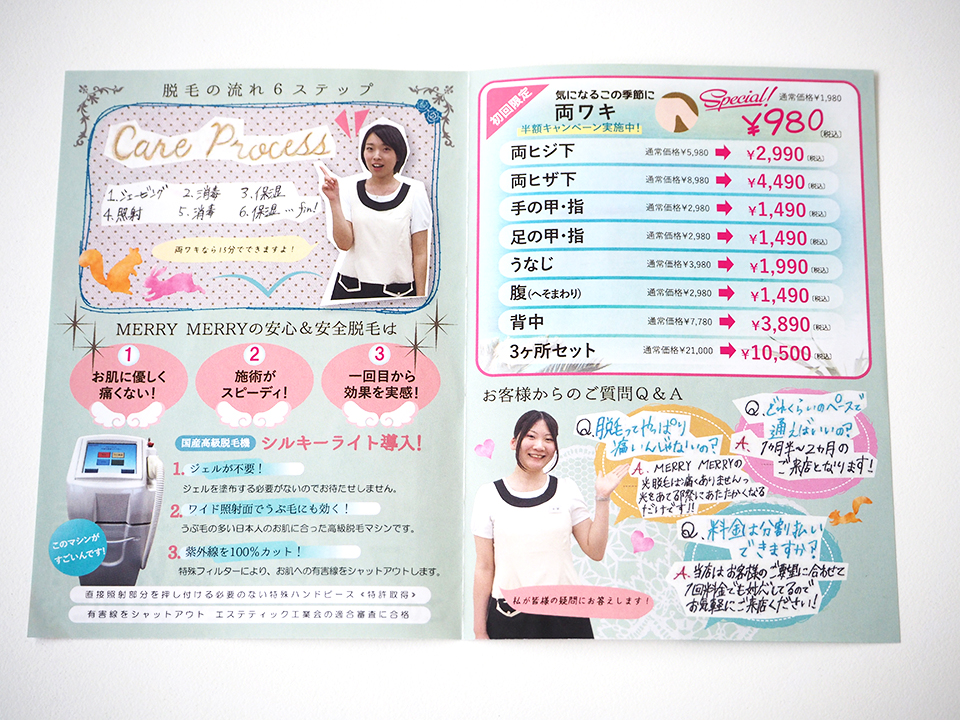 脱毛の流れ6ステップ
Care Process
1.シェービング 2.消毒 3.保湿
4.照射 5.消毒 6.保湿…fin!
両ワキなら15分でできますよ!
MERRY MERRYの安心&安全脱毛は
1
お肌に優しく
痛くない!
2
施術が
スピーディ!
3
一回目から
効果を実感!
国産高級脱毛機 シルキーライト導入!
1. ジェルが不要!
ジェルを塗布する必要がないのでお待たせしません。
2. ワイド照射面でうぶ毛にも効く!
うぶ毛の多い日本人のお肌に合った高級脱毛マシンです。
3. 紫外線を100%カット!
特殊フィルターにより、お肌への有害線をシャットアウトします。
このマシンが
すごいんです!
直接照射部分を押し付ける必要のない特殊ハンドピース<特許取得>
有害線をシャットアウト エステティック工業会の適合審査に合格
初回限定
気になるこの季節に
両ワキ
半額キャンペーン実施中!
Special! 通常価格¥1,980
¥980(税込)
両ヒジ下 通常価格¥5,980 ➡ ¥2,990(税込)
両ヒザ下 通常価格¥8,980 ➡ ¥4,490(税込)
手の甲・指 通常価格¥2,980 ➡ ¥1,490(税込)
足の甲・指 通常価格¥2,980 ➡ ¥1,490(税込)
うなじ 通常価格¥3,980 ➡ ¥1,990(税込)
腹(へそまわり) 通常価格¥2,980 ➡ ¥1,490(税込)
背中 通常価格¥7,780 ➡ ¥3,890(税込)
3ヶ所セット 通常価格¥21,000 ➡ ¥10,500(税込)
お客様からのご質問Q&A
Q.脱毛ってやっぱり
痛いんじゃないの?
A.MERRY MERRYの
光脱毛は痛くありませんっ
光をあてる際にあたたかくなる
だけです!!
Q.どれくらいのペースで
通えばいいの?
A.1ヶ月半〜2ヵ月の
ご来店となります!
Q.料金は分割払い
できますか?
A.当店はお客様のご要望に合わせて
1回料金でも対応してるので
お気軽にご来店ください!
私が皆様の疑問にお答えします!